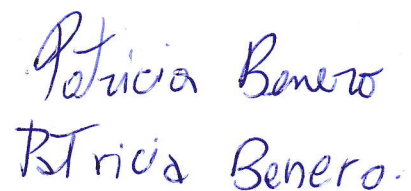 Patricia Benero
Patricia Benero.